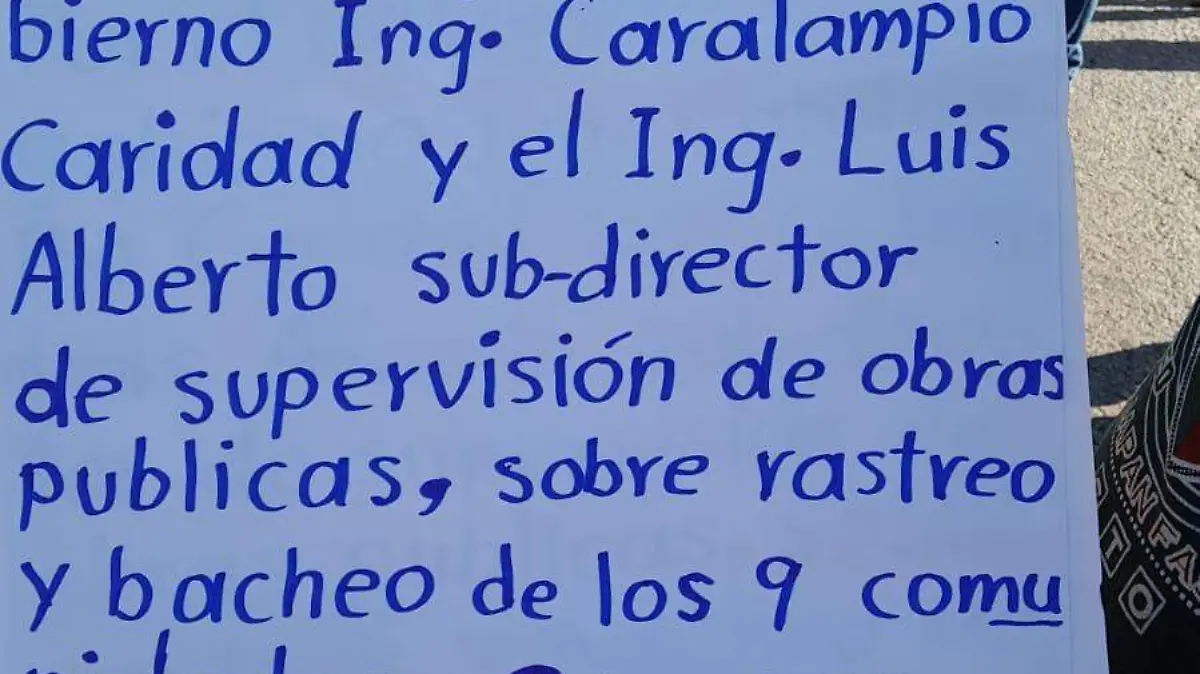 bierno Ing. Caralampio
Caridad y el Ing. Luis
Alberto sub-director
de supervisión de obras
publicas, sobre rastreo
y bacheo de los 9 comu